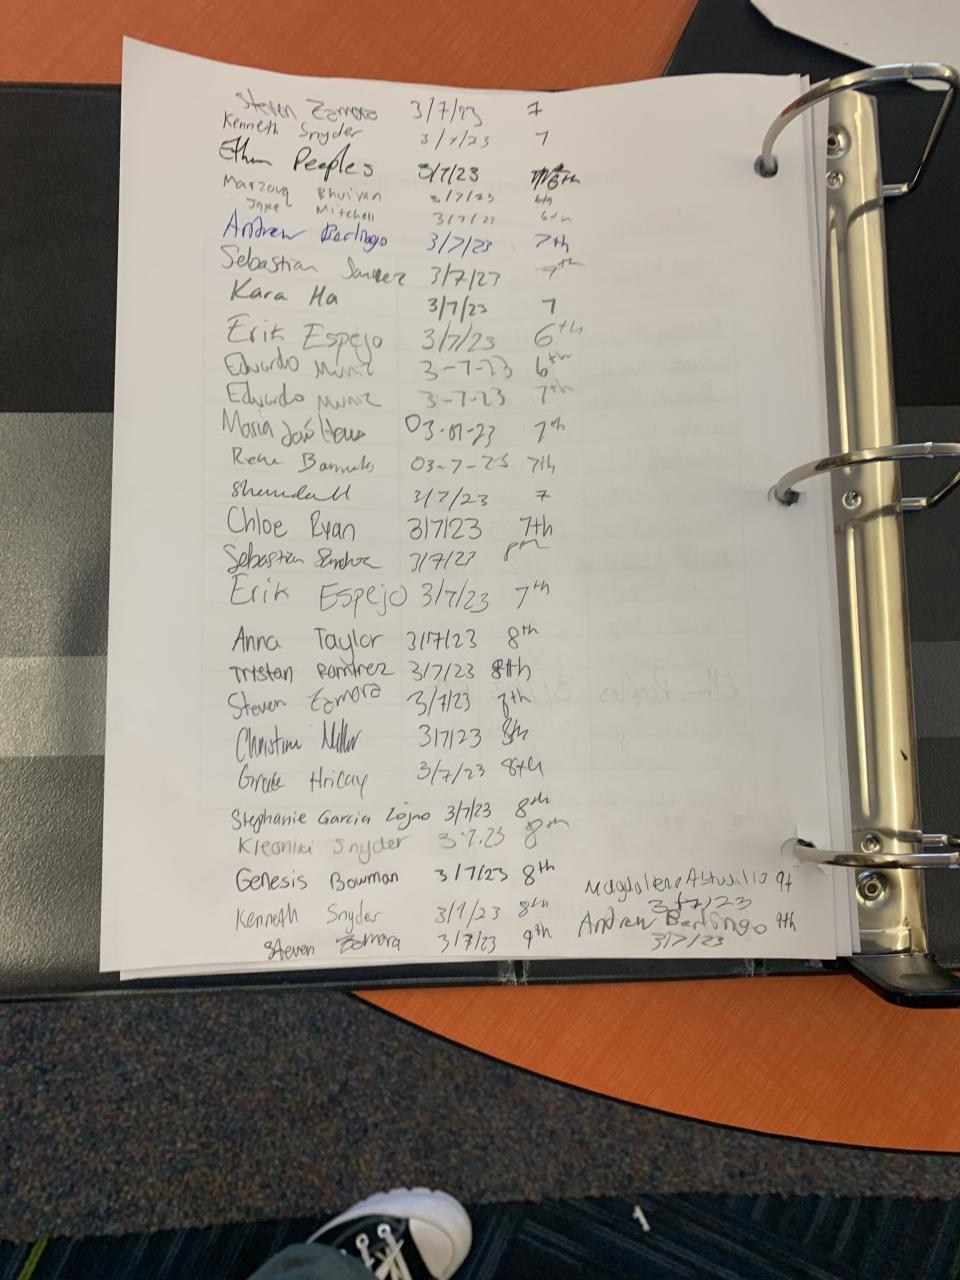 Steven Zamora 3/7/23 7
Kenneth Snyder 3/7/23 7
Ethan Peeples 3/7/23
Marzouq Bhuivan 3/7/23 6th
Jake Mitchell 3/7/23 6th
Andrew Berlingo 3/7/23 7th
Sebastian 3/7/23 7th
Kara Ha 3/7/23 7
Erik Espejo 3/7/23 6th
Eduardo Muniz 3-7-23 6th
Eduardo Muniz 3-7-23 7th
Maria José 03-07-23 7th
Rene 03-7-23 7th
3/7/23 7
Chloe Ryan 3/7/23 7th
Sebastian 3/7/23
Erik Espejo 3/7/23 7th
Anna Taylor 3/7/23 8th
Tristan Ramirez 3/7/23 8th
Steven Zamora 3/7/23
Christine Miller 3/7/23 8th
Hricay 3/7/23 8th
Stephanie Garcia 3/7/23 8th
Kleoniki Snyder 3.7.23 8th
Genesis Bowman 3/7/23 8th
Kenneth Snyder 3/7/23 8th
Steven Zamora 3/7/23 9th
Magdalena 9t
3/7/23
Andrew Berlingo 9th
3/7/23